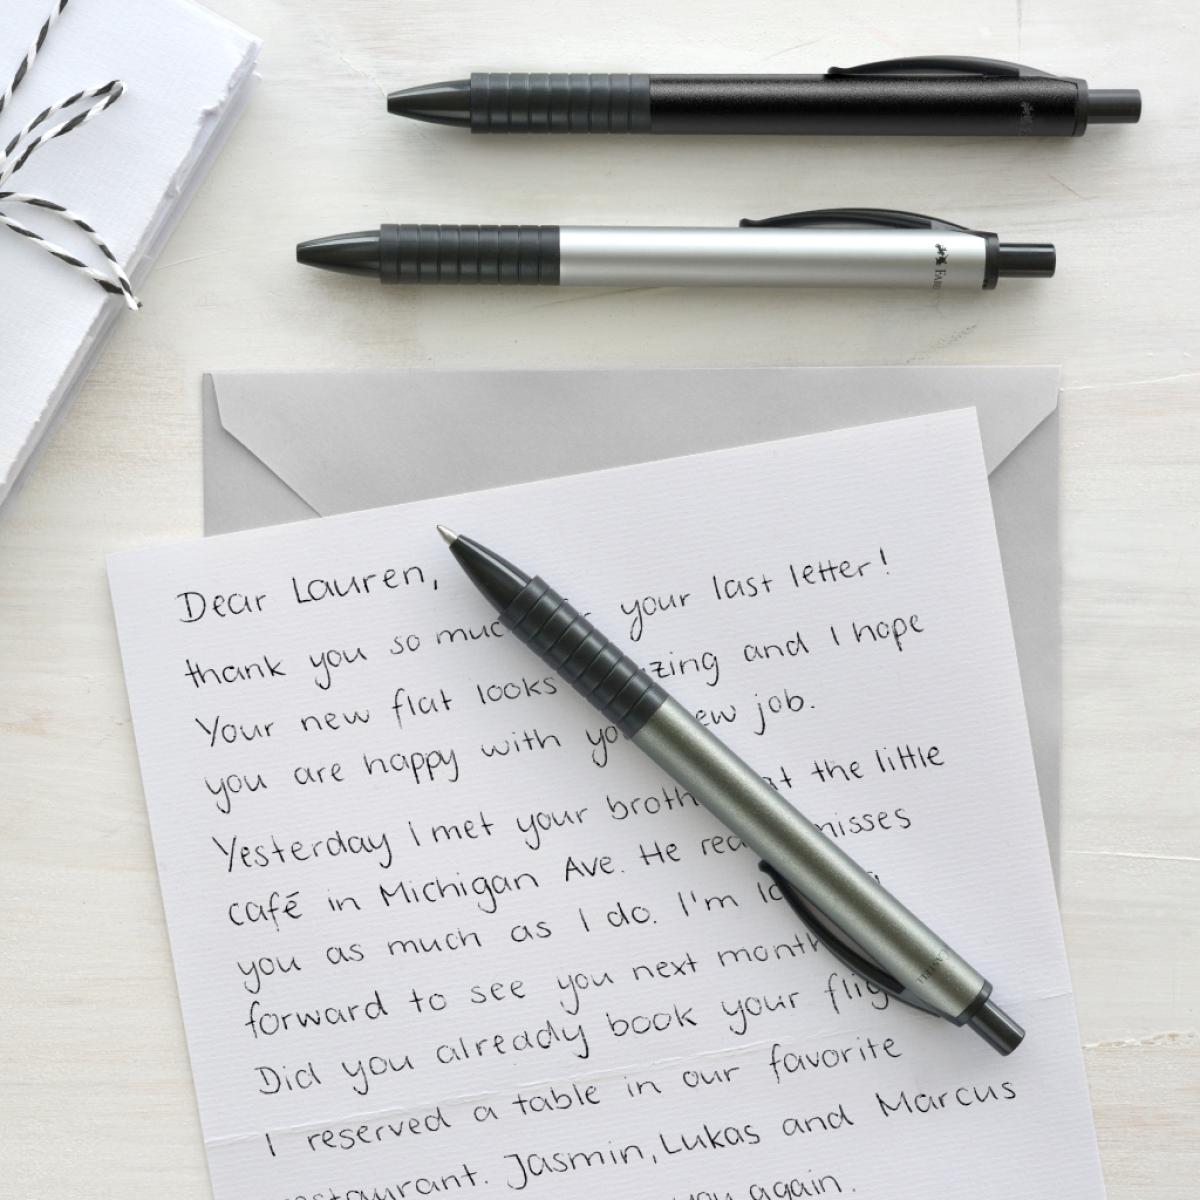 Dear Lauren,
thank you so your last letter!
Your new flat looks and I hope
you are happy with job.
Yesterday I met your at the little
café in Michigan Ave. He misses
you as much as I do. I'm
forward to see you next month
Did you already book your
I reserved a table in our favorite
restaurant. Jasmin, Lukas and Marcus
you again.